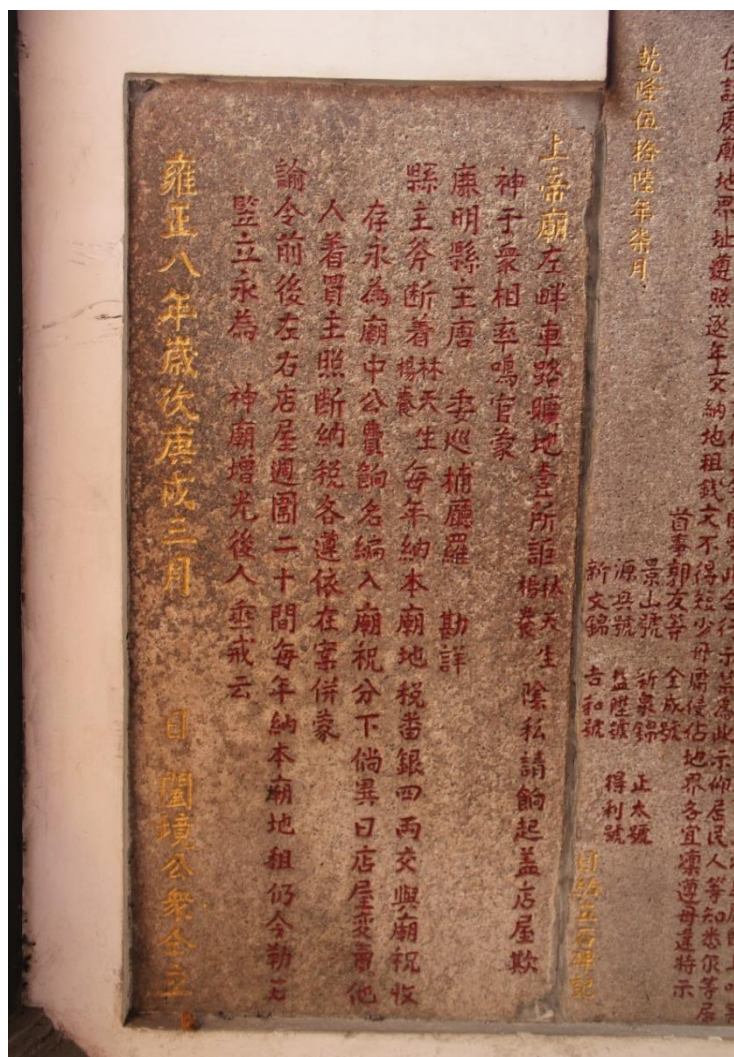 合行示禁為此示仰居民人等知悉尔等居
住該處廟地界址遵照逐年交納地租錢文不得短少毋庸侵佔地界各宜凜遵毋違特示
首事郭友等 金成號
景山號 新泉錦 正太號
源興號 益陞號 得利號
新文錦 吉和號
乾隆伍拾陸年柒月 日給立石碑記
上帝廟左畔車路曠地壹所詎林天生楊養陰私請餉起蓋店屋欺
神于衆相率鳴官蒙
廉明縣主唐 委巡捕廳羅 勘詳
縣主斧断着林天生楊養每年納本廟地税番銀四两交與廟祝收
存永為廟中公費餉名編入廟祝分下倘異日店屋变賣他
人着買主照断納税各遵依在案併蒙
諭令前後左右店屋週圍二十間每年納本廟地租仍令勒石
豎立永為 神廟增光後人垂戒云
雍正八年歲次庚戌三月 日 闔境公衆仝立